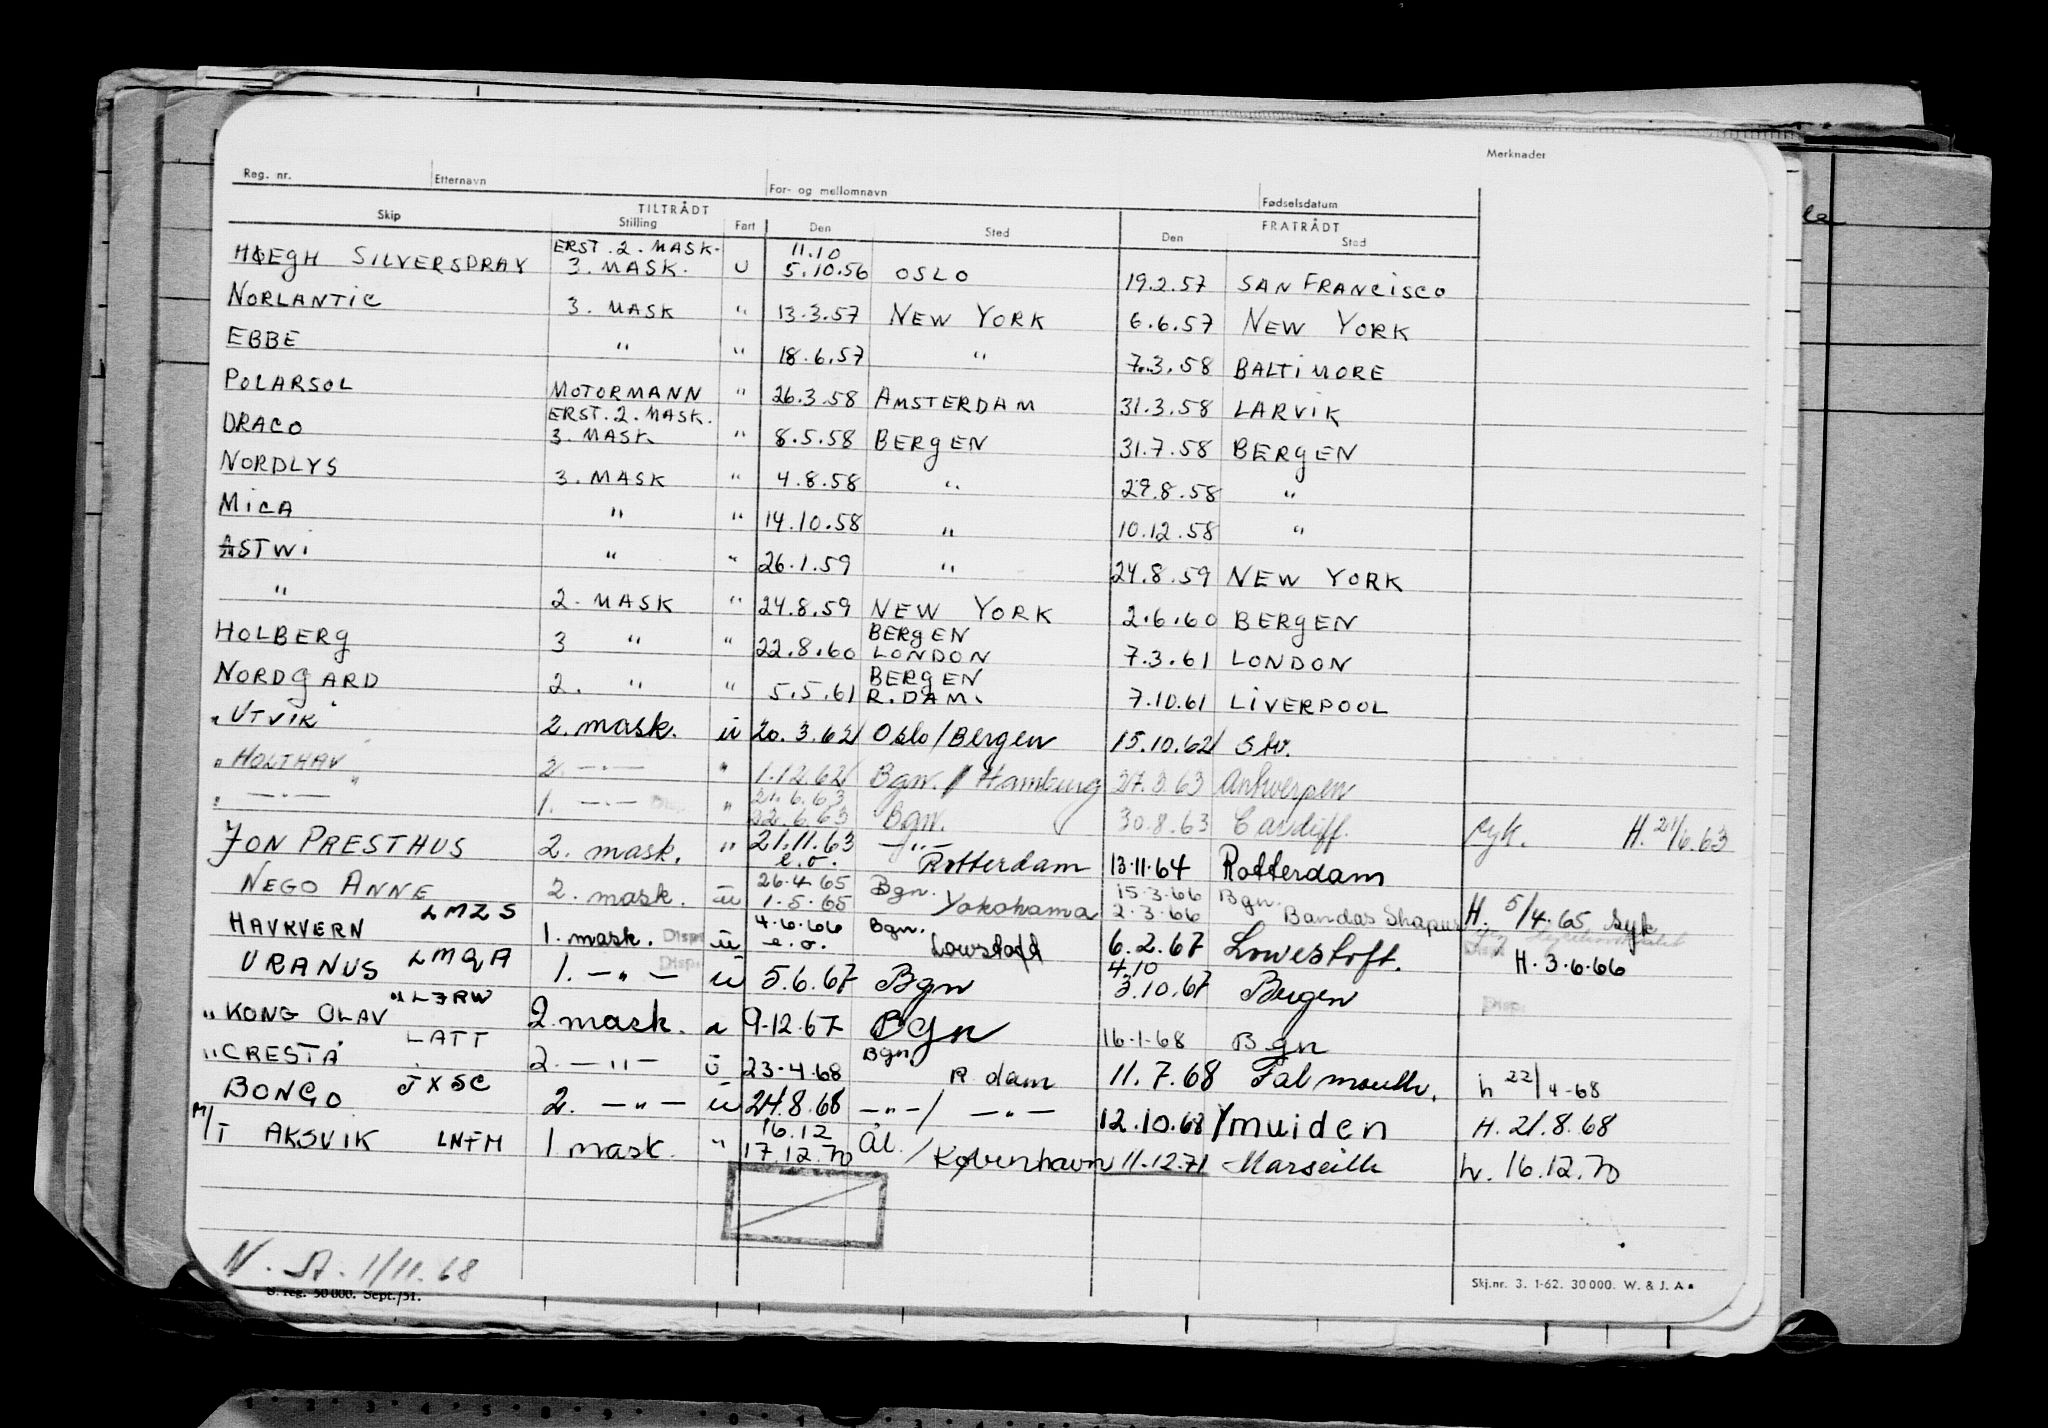 Merknader
Reg. nr. Etternavn For- og mellomnavn Fødselsdatum
TILTRÅDT FRATRÅDT
Skip Stilling Fart Den Sted Den Sted
ERST. 2. MASK. 11.10
HØEGH SILVERSPRAY 3. MASK. U 5.10.56 OSLO 19.2.57 SAN FRANCISCO
NORLANTIC 3. MASK " 13.3.57 NEW YORK 6.6.57 NEW YORK
EBBE " " 18.6.57 " 7.3.58 BALTIMORE
POLARSOL MOTORMANN " 26.3.58 AMSTERDAM 31.3.58 LARVIK
ERST. 2. MASK.
DRACO 3. MASK " 8.5.58 BERGEN 31.7.58 BERGEN
NORDLYS 3. MASK " 4.8.58 " 29.8.58 "
MICA " " 14.10.58 " 10.12.58 "
ASTWI " " 26.1.59 " 24.8.59 NEW YORK
" 2. MASK " 24.8.59 NEW YORK 2.6.60 BERGEN
BERGEN
HOLBERG 3 " " 22.8.60 LONDON 7.3.61 LONDON
BERGEN
NORDGARD 2. " " 5.5.61 R.DAM. 7.10.61 LIVERPOOL
"UTVIK" 2. mask. ü 20.3.62 Oslo/Bergen 15.10.62 Stv.
"HOLTHAV" 2. —"— " 1.12.62 Bgn. / Hamburg 27.3.63 Antwerpen
21.6.63
" —"— " 1. —"— Disp " 22.6.63 Bgn. 30.8.63 Cardiff. syk. H. 21/6.63
JON PRESTHUS 2. mask. " 21.11.63 —"—
e.o. Rotterdam 13.11.64 Rotterdam
26.4.65 Bgn. 15.3.66 Bgn.
NEGO ANNE 2. mask. ü 1.5.65 Yokohama 2.3.66 Bandas Shapur H. 5/4.65 Syk
LMZS 4.6.66 Bgn.
HAVKVERN 1. mask. Disp ü e.o. Lowestoft 6.2.67 Lowestoft. H. 3.6.66
LMQA 4.10
URANUS 1. —"— Disp. ü 5.6.67 Bgn 3.10.67 Bergen Disp.
"KONG OLAV" LJRW 2. mask. a 9.12.67 Bgn 16.1.68 Bgn
LATT Bgn
"CRESTA" 2. —"— ü 23.4.68 R.dam 11.7.68 Falmouth. h 22/4-68
BONGO JXSC 2. —"— ü 24.8.68 —"—/ —"— 12.10.68 Ymuiden H. 21.8.68
16.12
M/T AKSVIK LNFM 1 mask. " 17.12.70 Ål. / København 11.12.71 Marseille h. 16.12.70
N. A. 1/11.68
S. reg. 50 000. Sept./51.
Skj.nr. 3. 1-62. 30 000. W. & J. A.
1 2 3 4 5 6 7 8 9